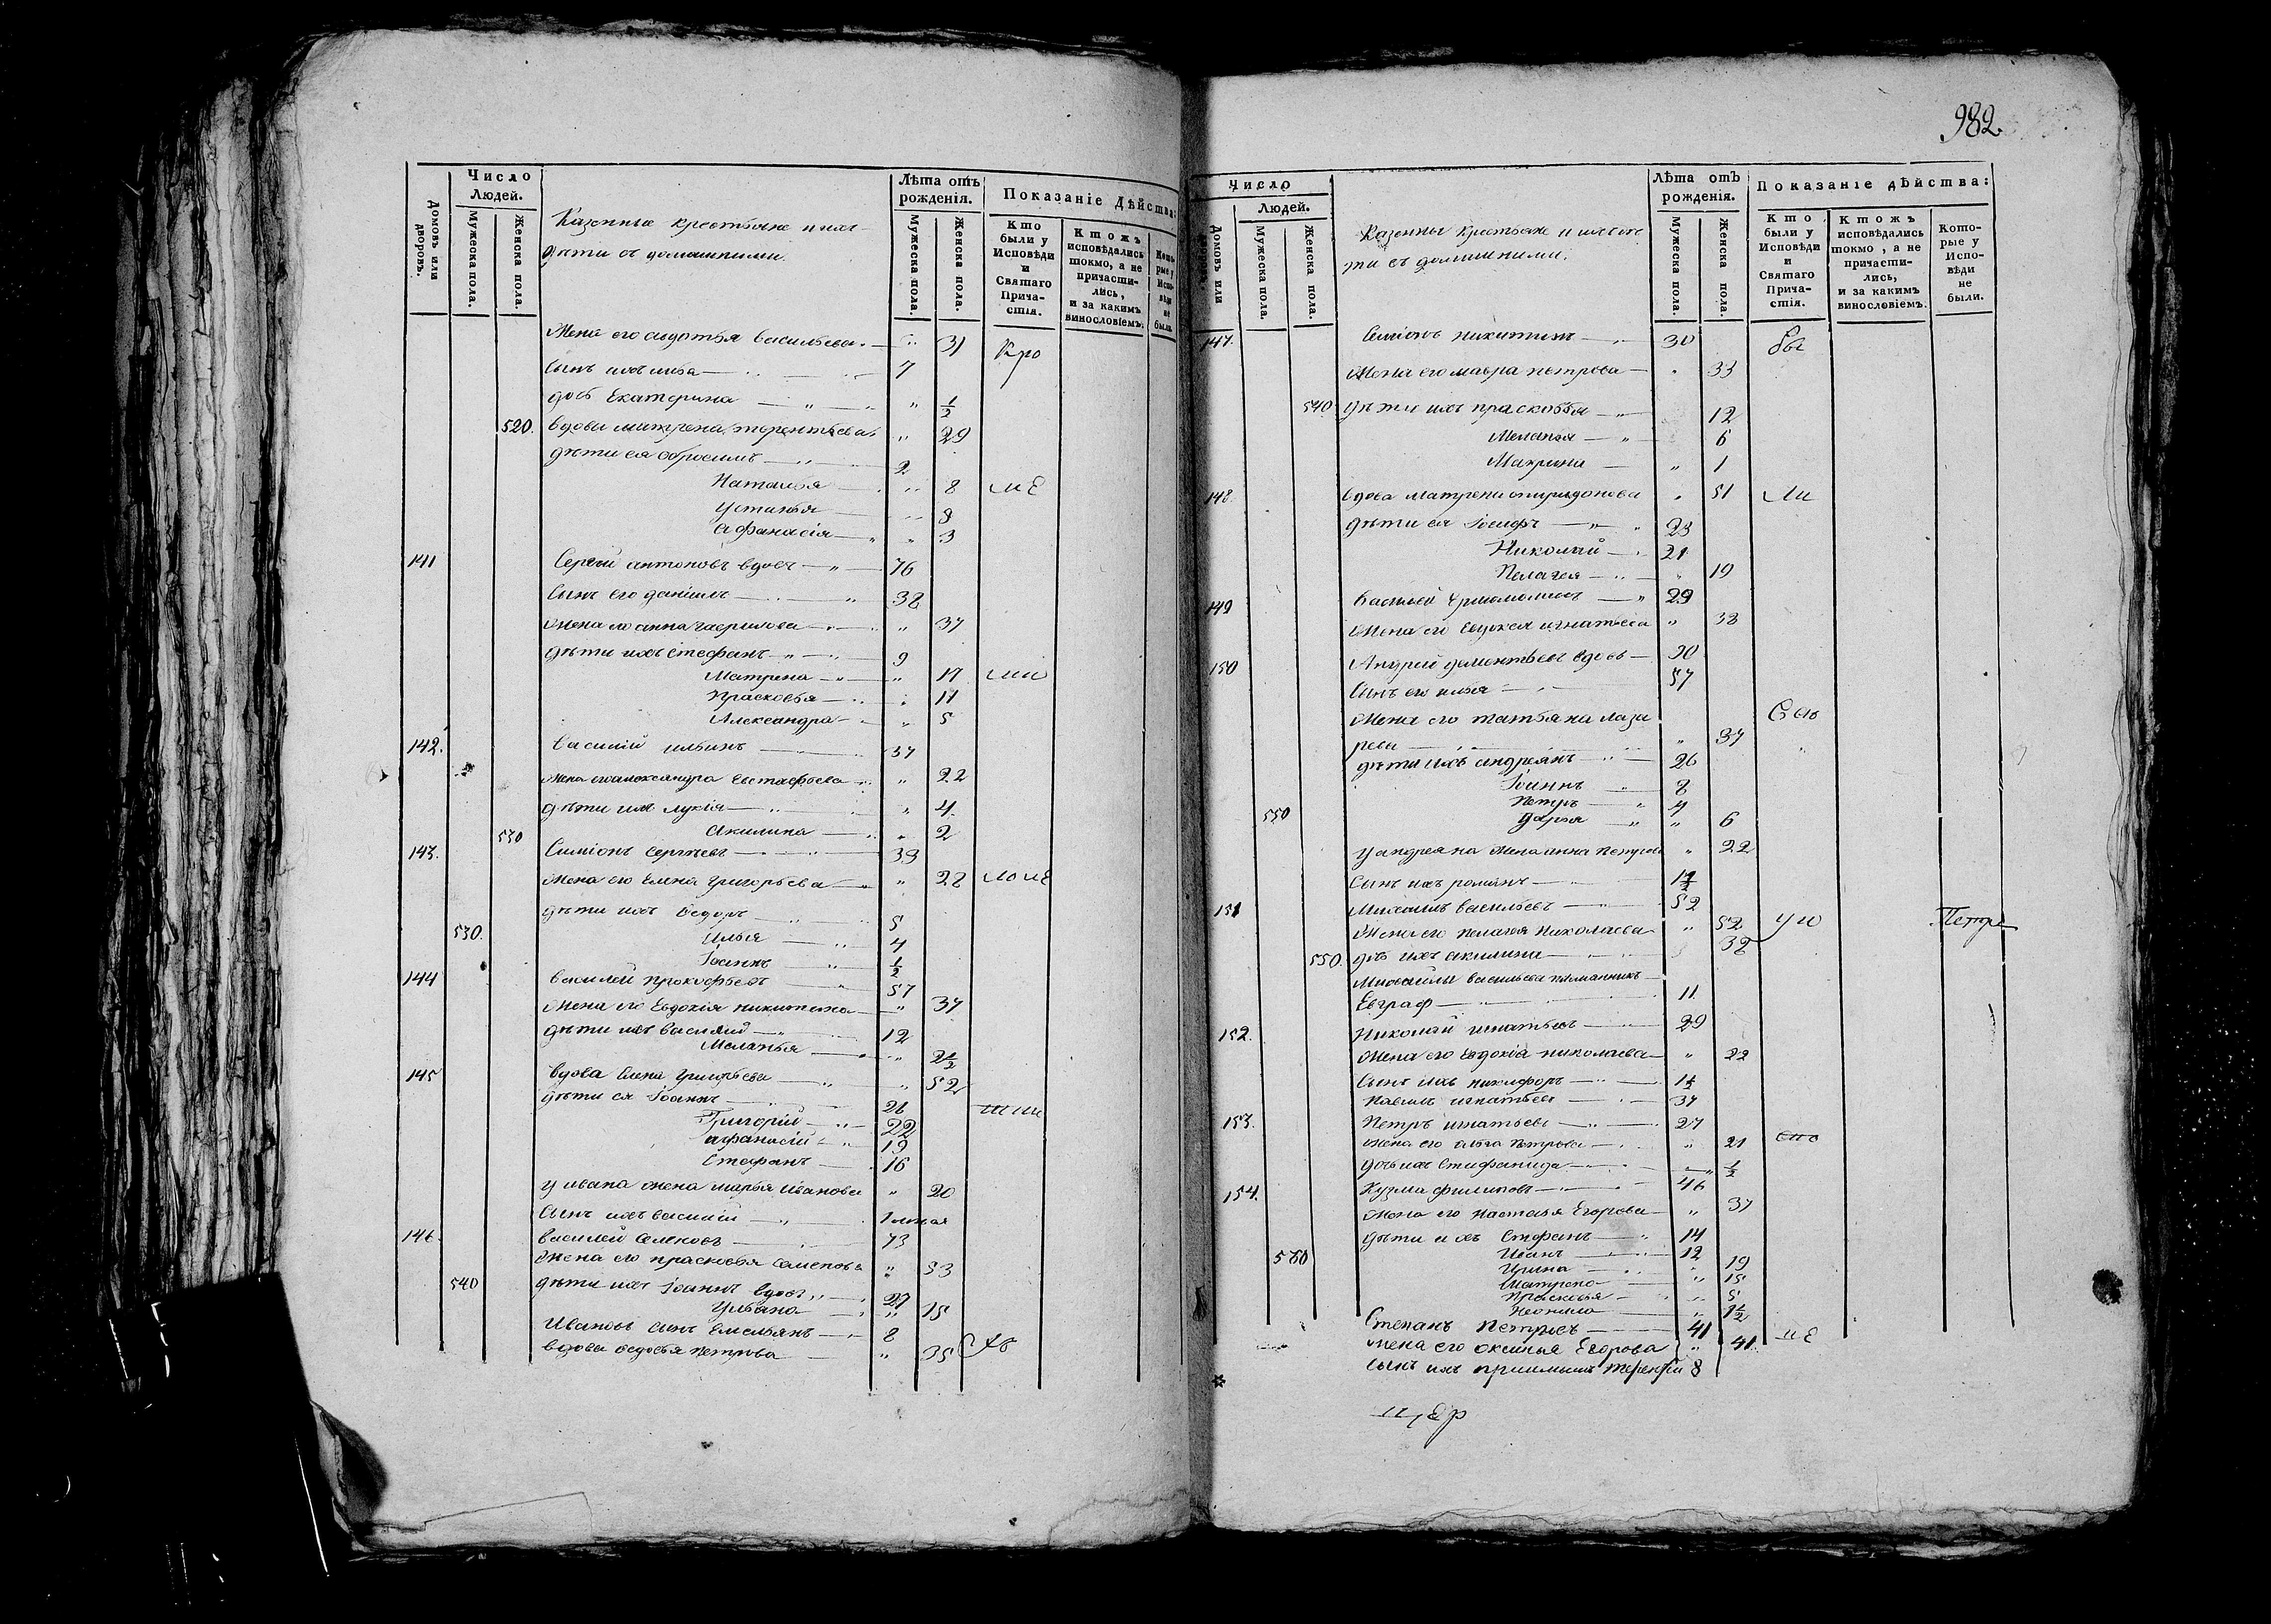 982.
Число
Людей.
Домовъ или дворовъ.
Мужеска пола.
Женска пола.
Казенные крестьяне и ихъ
дѣти съ домашними.
Лѣта отъ
рожденія.
Мужеска пола.
Женска пола.
Показаніе дѣйства:
Кто были у Исповѣди и Святаго Причастія.
Ктожъ исповѣдались токмо, а не причастились, и за какимъ винословіемъ.
Которые у Исповѣди не были.
Жена его авдотья васильева 31 Кро
Сынъ ихъ 7
дочь Екатерина 1/2
520. вдова матрена терентьева 29
дѣти ея 2
Наталья 8
Устинья 8
Афанасія 3
141 Сергей антоновъ вдовъ 76
Сынъ его данiилъ 38
Жена его анна гаврилова 37
дѣти ихъ Стефанъ 9
Матрена 17
Прасковья 11
Александра 5
142. василій ильинъ 37
Жена его александра Евстафьева 22
дѣти ихъ лукія 4
530 Акилина 2
143. Симіонъ Сергѣевъ 39
Жена его Елена григорьева 28
дѣти ихъ Ѳедоръ 5
530. Илья 4
Іоаннъ 1/2
144 василей прокофьевъ 57
Жена его Евдокія никитина 37
дѣти ихъ василій 12
Меланья 2 1/2
145 вдова Елена григорьева 52
дѣти ея Іоаннъ 26
Григорій 22
афанасій 19
Стефанъ 16
у ивана жена марья иванова 20
Сынъ ихъ василій
146. василей Семеновъ 73
Жена его прасковья Семенова 53
540 дѣти ихъ Іоаннъ вдовъ 27
Ульяна 15
Ивановъ сынъ Емельянъ 8
вдова Ѳедосья петрова 35
Число
Людей.
Домовъ или дворовъ.
Мужеска пола.
Женска пола.
Казенны крестьяне и ихъ дѣ
ти съ домашними.
Лѣта отъ
рожденія.
Мужеска пола.
Женска пола.
Показаніе дѣйства:
Кто были у Исповѣди и Святаго Причастія.
Ктожъ исповѣдались токмо, а не причастились, и за какимъ винословіемъ.
Которые у Исповѣди не были.
147. Симіонъ никитинъ 30 бы
Жена его мавра петрова 33
540. дѣти ихъ прасковья 12
Меланья 6
Макрина 1
148. вдова матрена спиридонова 51 ли
дѣти ея Іосифъ 23
Николай 21
Пелагея 19
149 василей Ермолинъ 29
Жена его Евдокея игнатьева 38
150 Андрей дементьевъ вдовъ 90
Сынъ его илья 57
Жена его татьяна лаза
рева 37
дѣти ихъ андреянъ 26
Іоаннъ 8
Петръ 4
550 дарья 6
у андреяна жена анна петрова 22
Сынъ ихъ романъ 1 1/2
151 Михаилъ васильевъ 52
Жена его пелагея николаева 52
550. дочь ихъ акилина 32
Михайлы васильева племянникъ
Евграф 11
152. Николай игнатьевъ 29
Жена его Евдокіа николаева 22
Сынъ ихъ никифоръ 1 1/2
павелъ игнатьевъ 37
153. Петръ игнатьевъ 27
жена его петрова 21
дочь ихъ Стефанида 1/2
154. Кузма филиповъ 46
Жена его настасья Егорова 37
дѣти ихъ Стефанъ 14
560 Иванъ 12
Ирина 19
Матрена 15
Прасковья 5
Неонила 1 1/2
Степанъ петровъ 41
жена его оксинья Егорова 41
Сынъ ихъ приимышъ терентiй 8